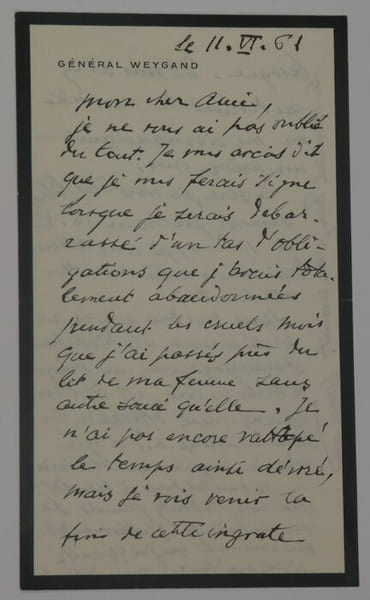 le 11. VI. 61
GÉNÉRAL WEYGAND
mon cher Ami,
je ne vous ai pas oublié
du tout. Je vous avais dit
que je vous ferais signe
lorsque je serais débar-
rassé d'un tas d'obli-
gations que j'avais tota-
lement abandonnées
pendant les cruels mois
que j'ai passés près du
lit de ma femme sans
autre souci qu'elle. Je
n'ai pas encore rattrapé
le temps ainsi dévoré,
mais je vois venir la
fin de cette ingrate